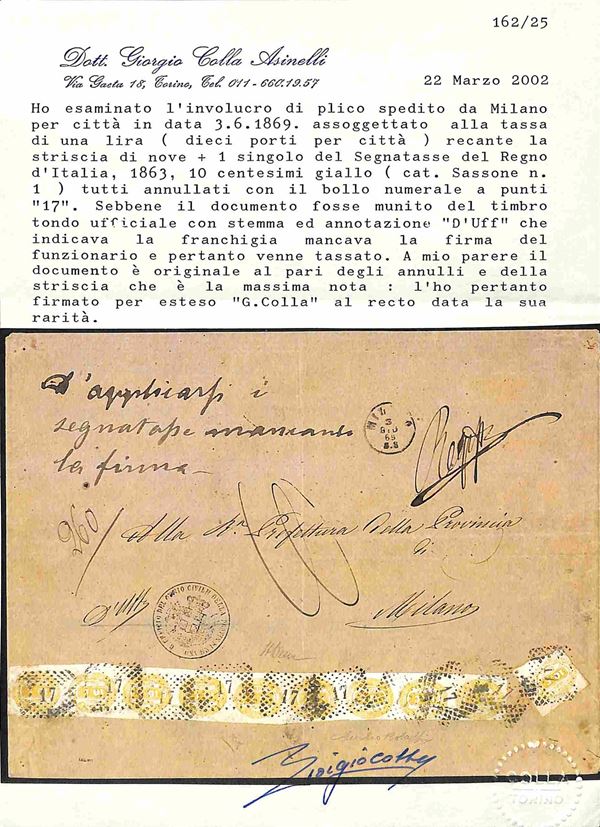 162/25
Dott. Giorgio Colla Asinelli
Via Gaeta 18, Torino, Tel. 011 - 660.19.57
22 Marzo 2002
Ho esaminato l'involucro di plico spedito da Milano
per città in data 3.6.1869. assoggettato alla tassa
di una lira ( dieci porti per città ) recante la
striscia di nove + 1 singolo del Segnatasse del Regno
d'Italia, 1863, 10 centesimi giallo ( cat. Sassone n.
1 ) tutti annullati con il bollo numerale a punti
"17". Sebbene il documento fosse munito del timbro
tondo ufficiale con stemma ed annotazione "D'Uff" che
indicava la franchigia mancava la firma del
funzionario e pertanto venne tassato. A mio parere il
documento è originale al pari degli annulli e della
striscia che è la massima nota : l'ho pertanto
firmato per esteso "G.Colla" al recto data la sua
rarità.
D'applicarsi i
segnatasse mancando
la firma
3
GIU
69
260
10
Alla Ra. Prefettura della Provincia
di
Milano
D'Uff
17 17 17 17 17 17 17 17
COLLA